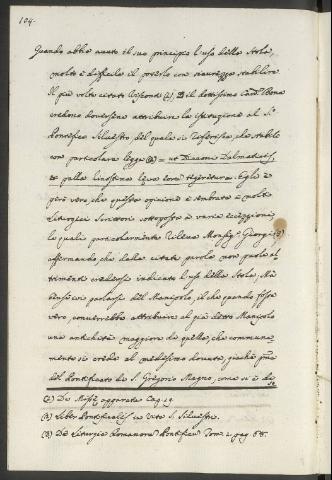 104.
Quando abbia avuto il suo principio l'uso della Stola,
molto è difficile il poterlo con sicurezza stabilire.
Il più volte citato Visconti (1), e il dottissimo Card. Bona
credono doversene attribuire la istituzione al S.
Pontefice Silvestro, del quale si riferisce, che stabilì
con particolare legge (2) = ut Diaconi Dalmaticis,
et palla linostima leva eorum tegeretur. Egli è
però vero, che questa opinione è sembrata a molti
Liturgici Scrittori sottoposta a varie eccezzioni,
le quali particolarmente rileva Monsig. Georgi (3)
affermando che dalle citate parole non può al-
trimenti credersi indicato l'uso della Stola, ma
bensì ivi parlarsi del Manipolo, il che quando fosse
vero, converrebbe attribuire al già detto Manipolo
una antichità maggiore di quella, che communa-
mente si crede al medesimo dovuta, giacchè prima
del Pontificato di S. Gregorio Magno, come si è di
(1) De Missæ apparatu Cap. 19.
(2) Liber Pontificalis in Vita S. Silvestri.
(3) De Liturgia Romanorum Pontificum Tom. 1. pag.